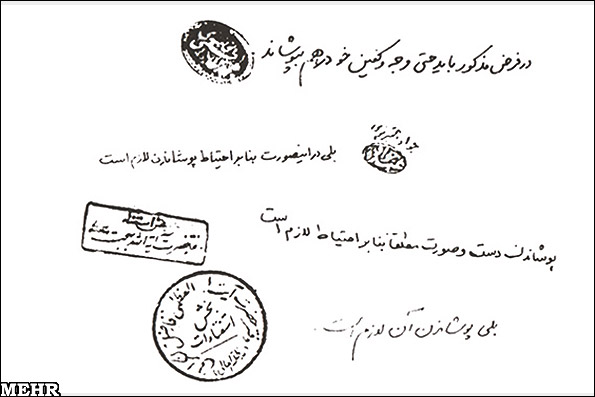 در فرض مذکور باید حتی وجه و کفین خود را هم بپوشاند
جواد تبریزی
بلی در اینصورت بنا بر احتیاط پوشاندن لازم است
پوشاندن دست و صورت مطلقا بنا بر احتیاط لازم است
بخش
استفتاءات
بلی پوشاندن آن لازم است.
MEHR